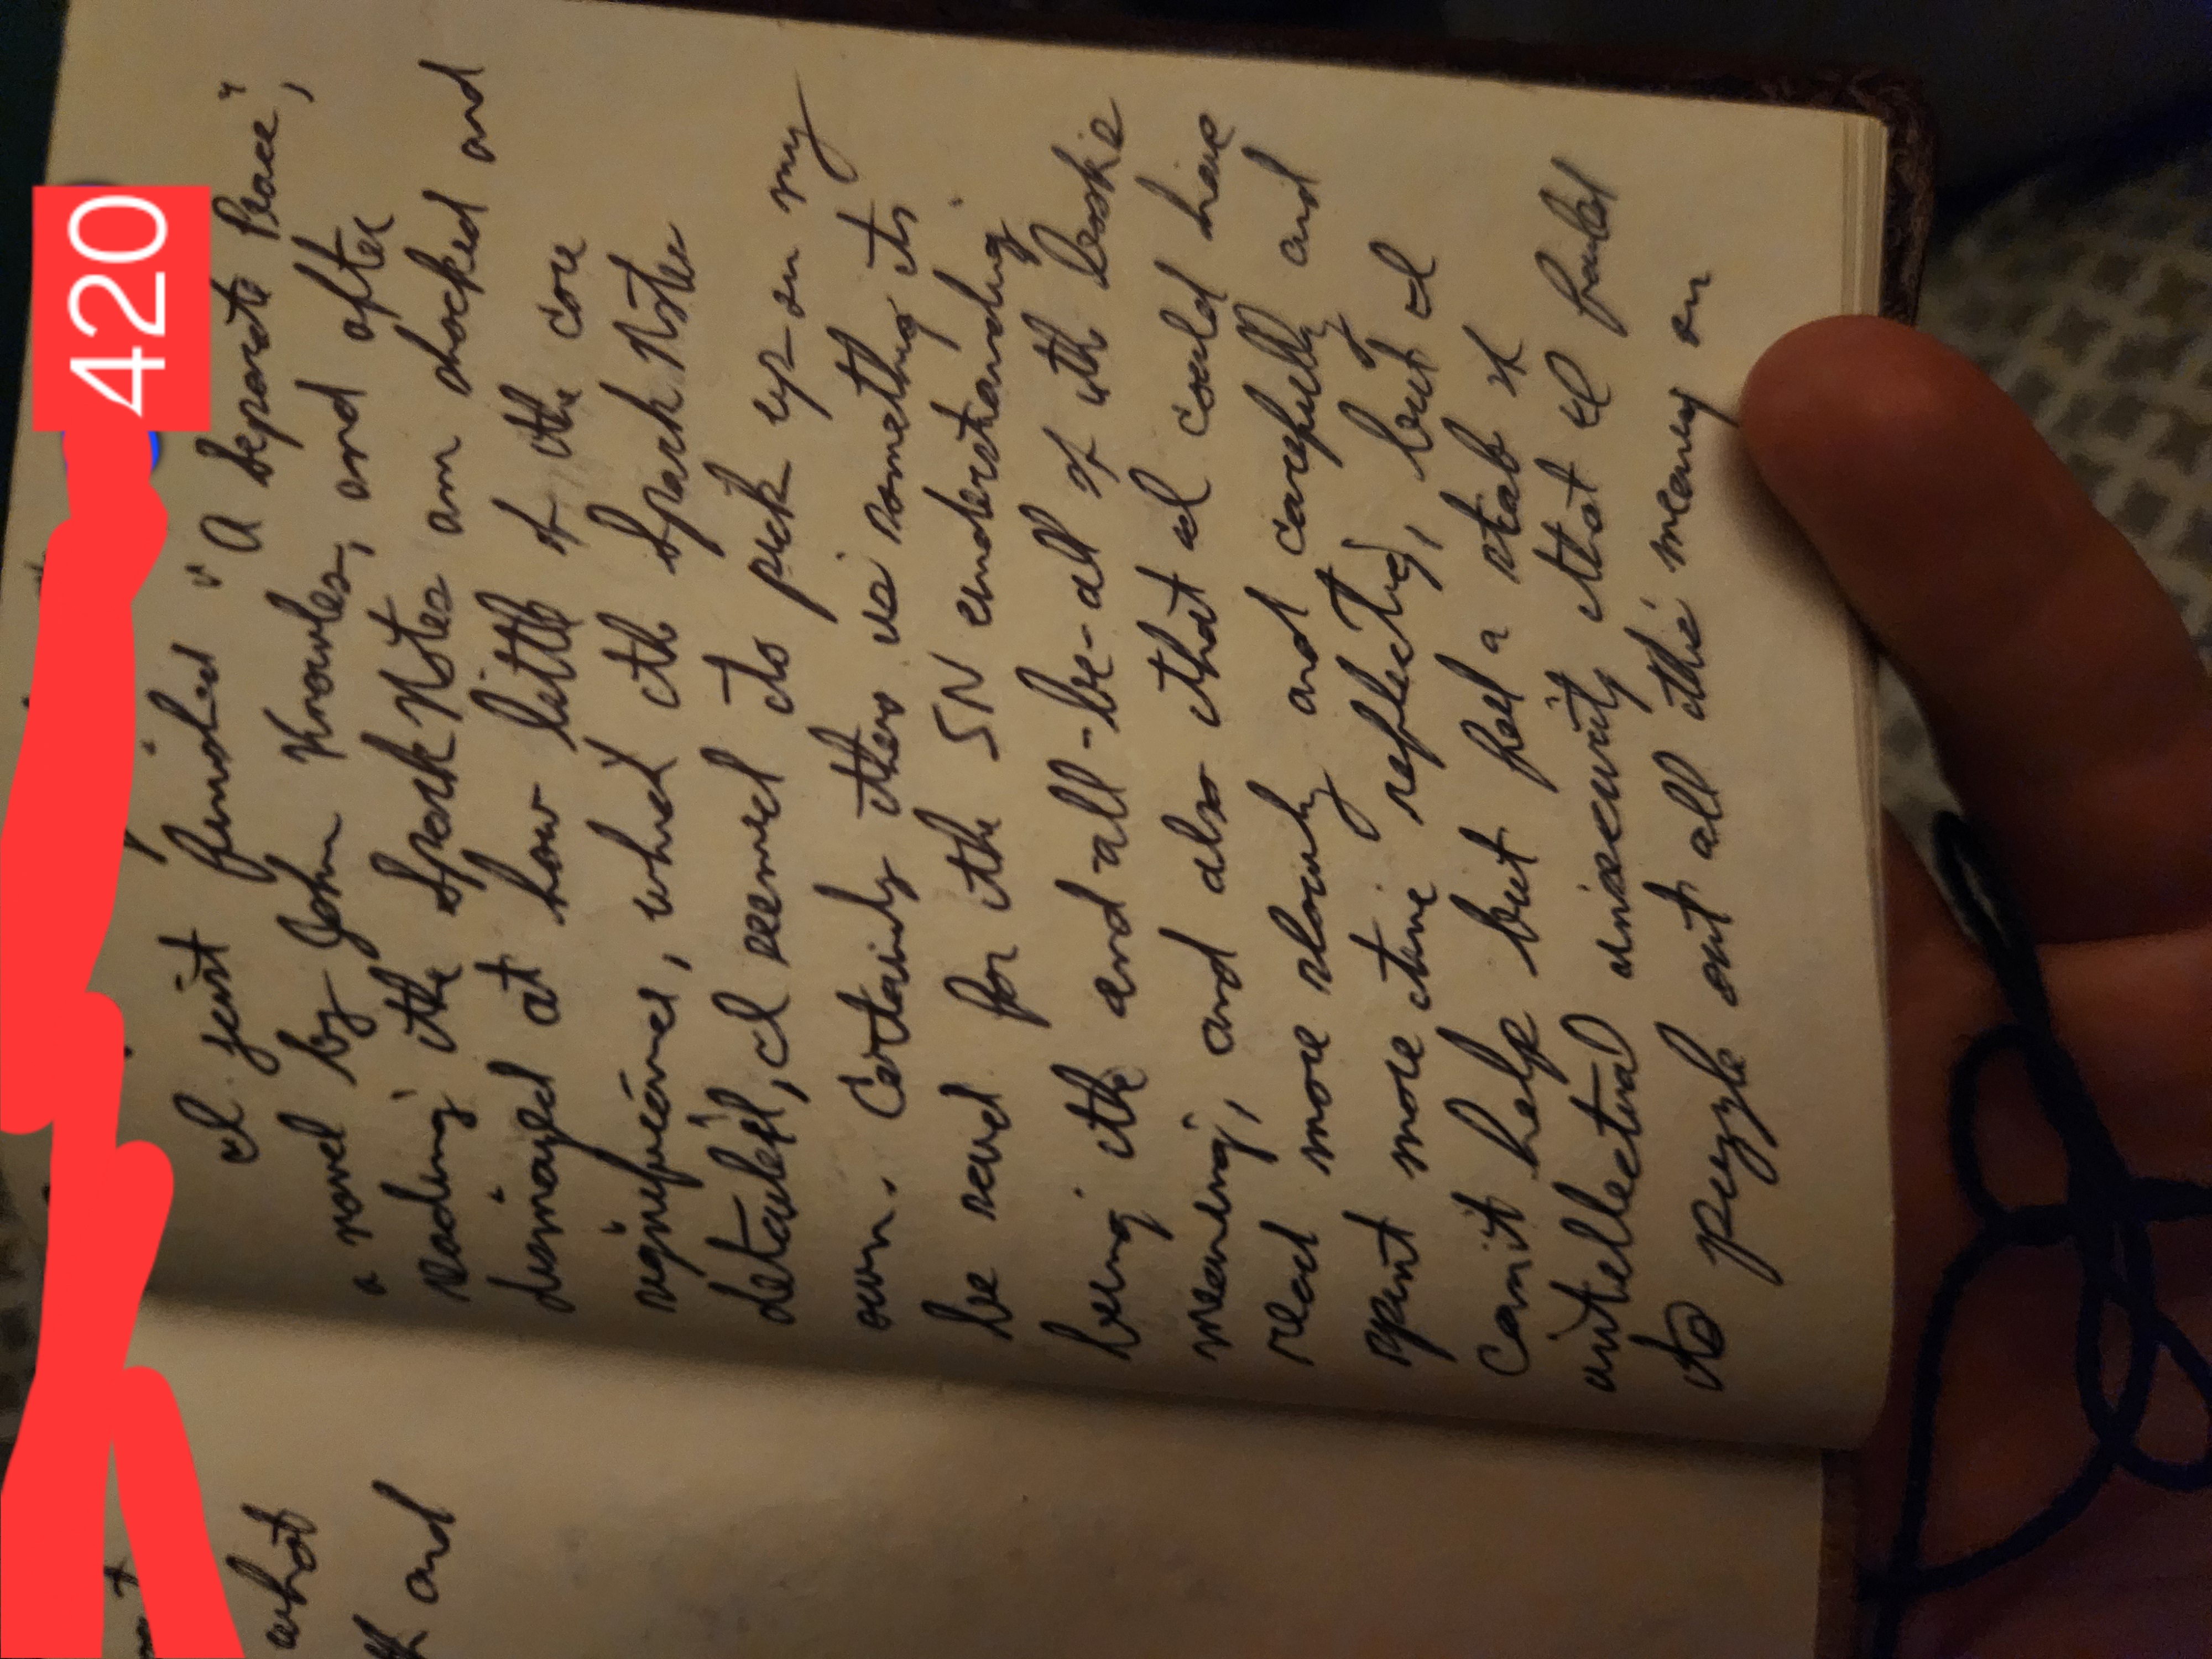 420
I just finished "A Separate Peace",
a novel by John Knowles, and after
reading the SparkNotes am shocked and
dismayed at how little of the core
significance, which the SparkNotes
detailed, I seemed to pick up on my
own. Certainly there is something to
be said for the SN understanding
being the end-all-be-all of the book's
meaning, and also that I could have
read more slowly and carefully and
spent more time reflecting, but I
can't help but feel a stab of
intellectual insecurity that I failed
to puzzle out all the meaning on
what
and